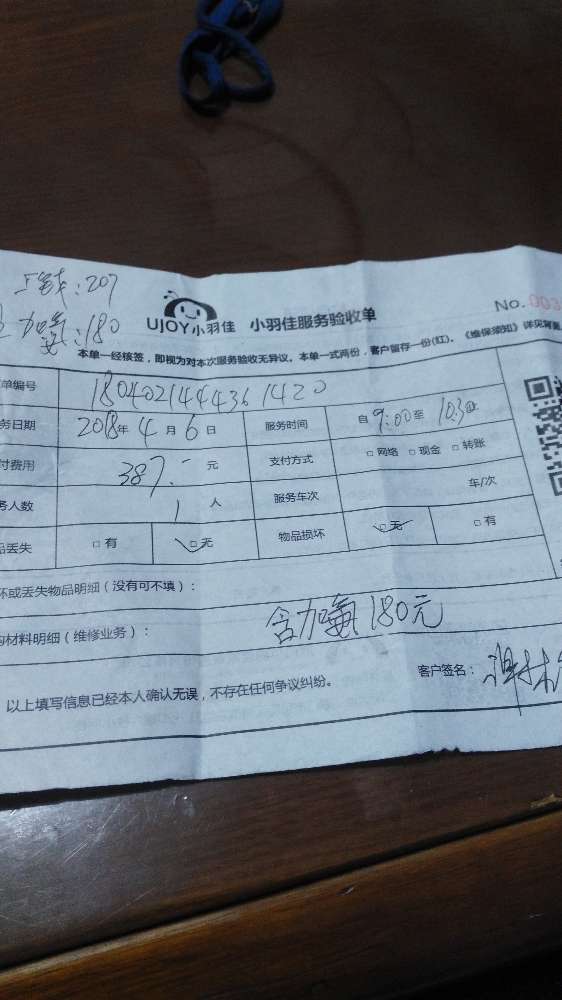 :207
加氨:180
UJOY小羽佳 小羽佳服务验收单
No.003
本单一经核签，即视为对本次服务验收无异议。本单一式两份，客户留存一份(红)。《维保须知》详见背面
单编号 1804021444361420
务日期 2018年4月6日 服务时间 自9:00至10:30止
付费用 387.- 元 支付方式 □网络 □现金 □转账
务人数 1人 服务车次 车/次
品丢失 □有 □无 物品损坏 □无 □有
坏或丢失物品明细（没有可不填）：
材料明细（维修业务）： 含加氨180元
以上填写信息已经本人确认无误，不存在任何争议纠纷。
客户签名：